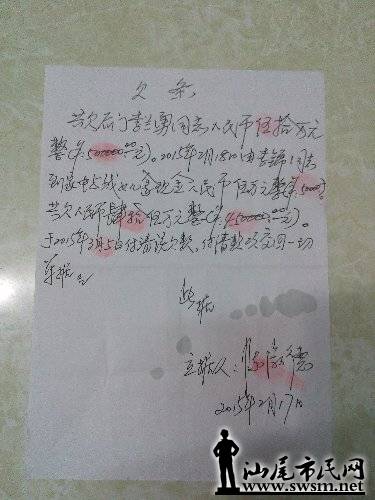 欠条
兹欠后门李兰勇同志人民币伍拾万元
整(¥:500000元)。2015年2月18日由李锦同志
到家中与钱 现金人民币伍万元整(¥:50000元)
共欠人民币肆拾伍万元整(¥:450000元)。
于2015年3月5日付清该欠款,付清款项交回一切
单据。
此据
立据人:陈 德
2015年2月17日
汕尾市民网
www.swsm.net